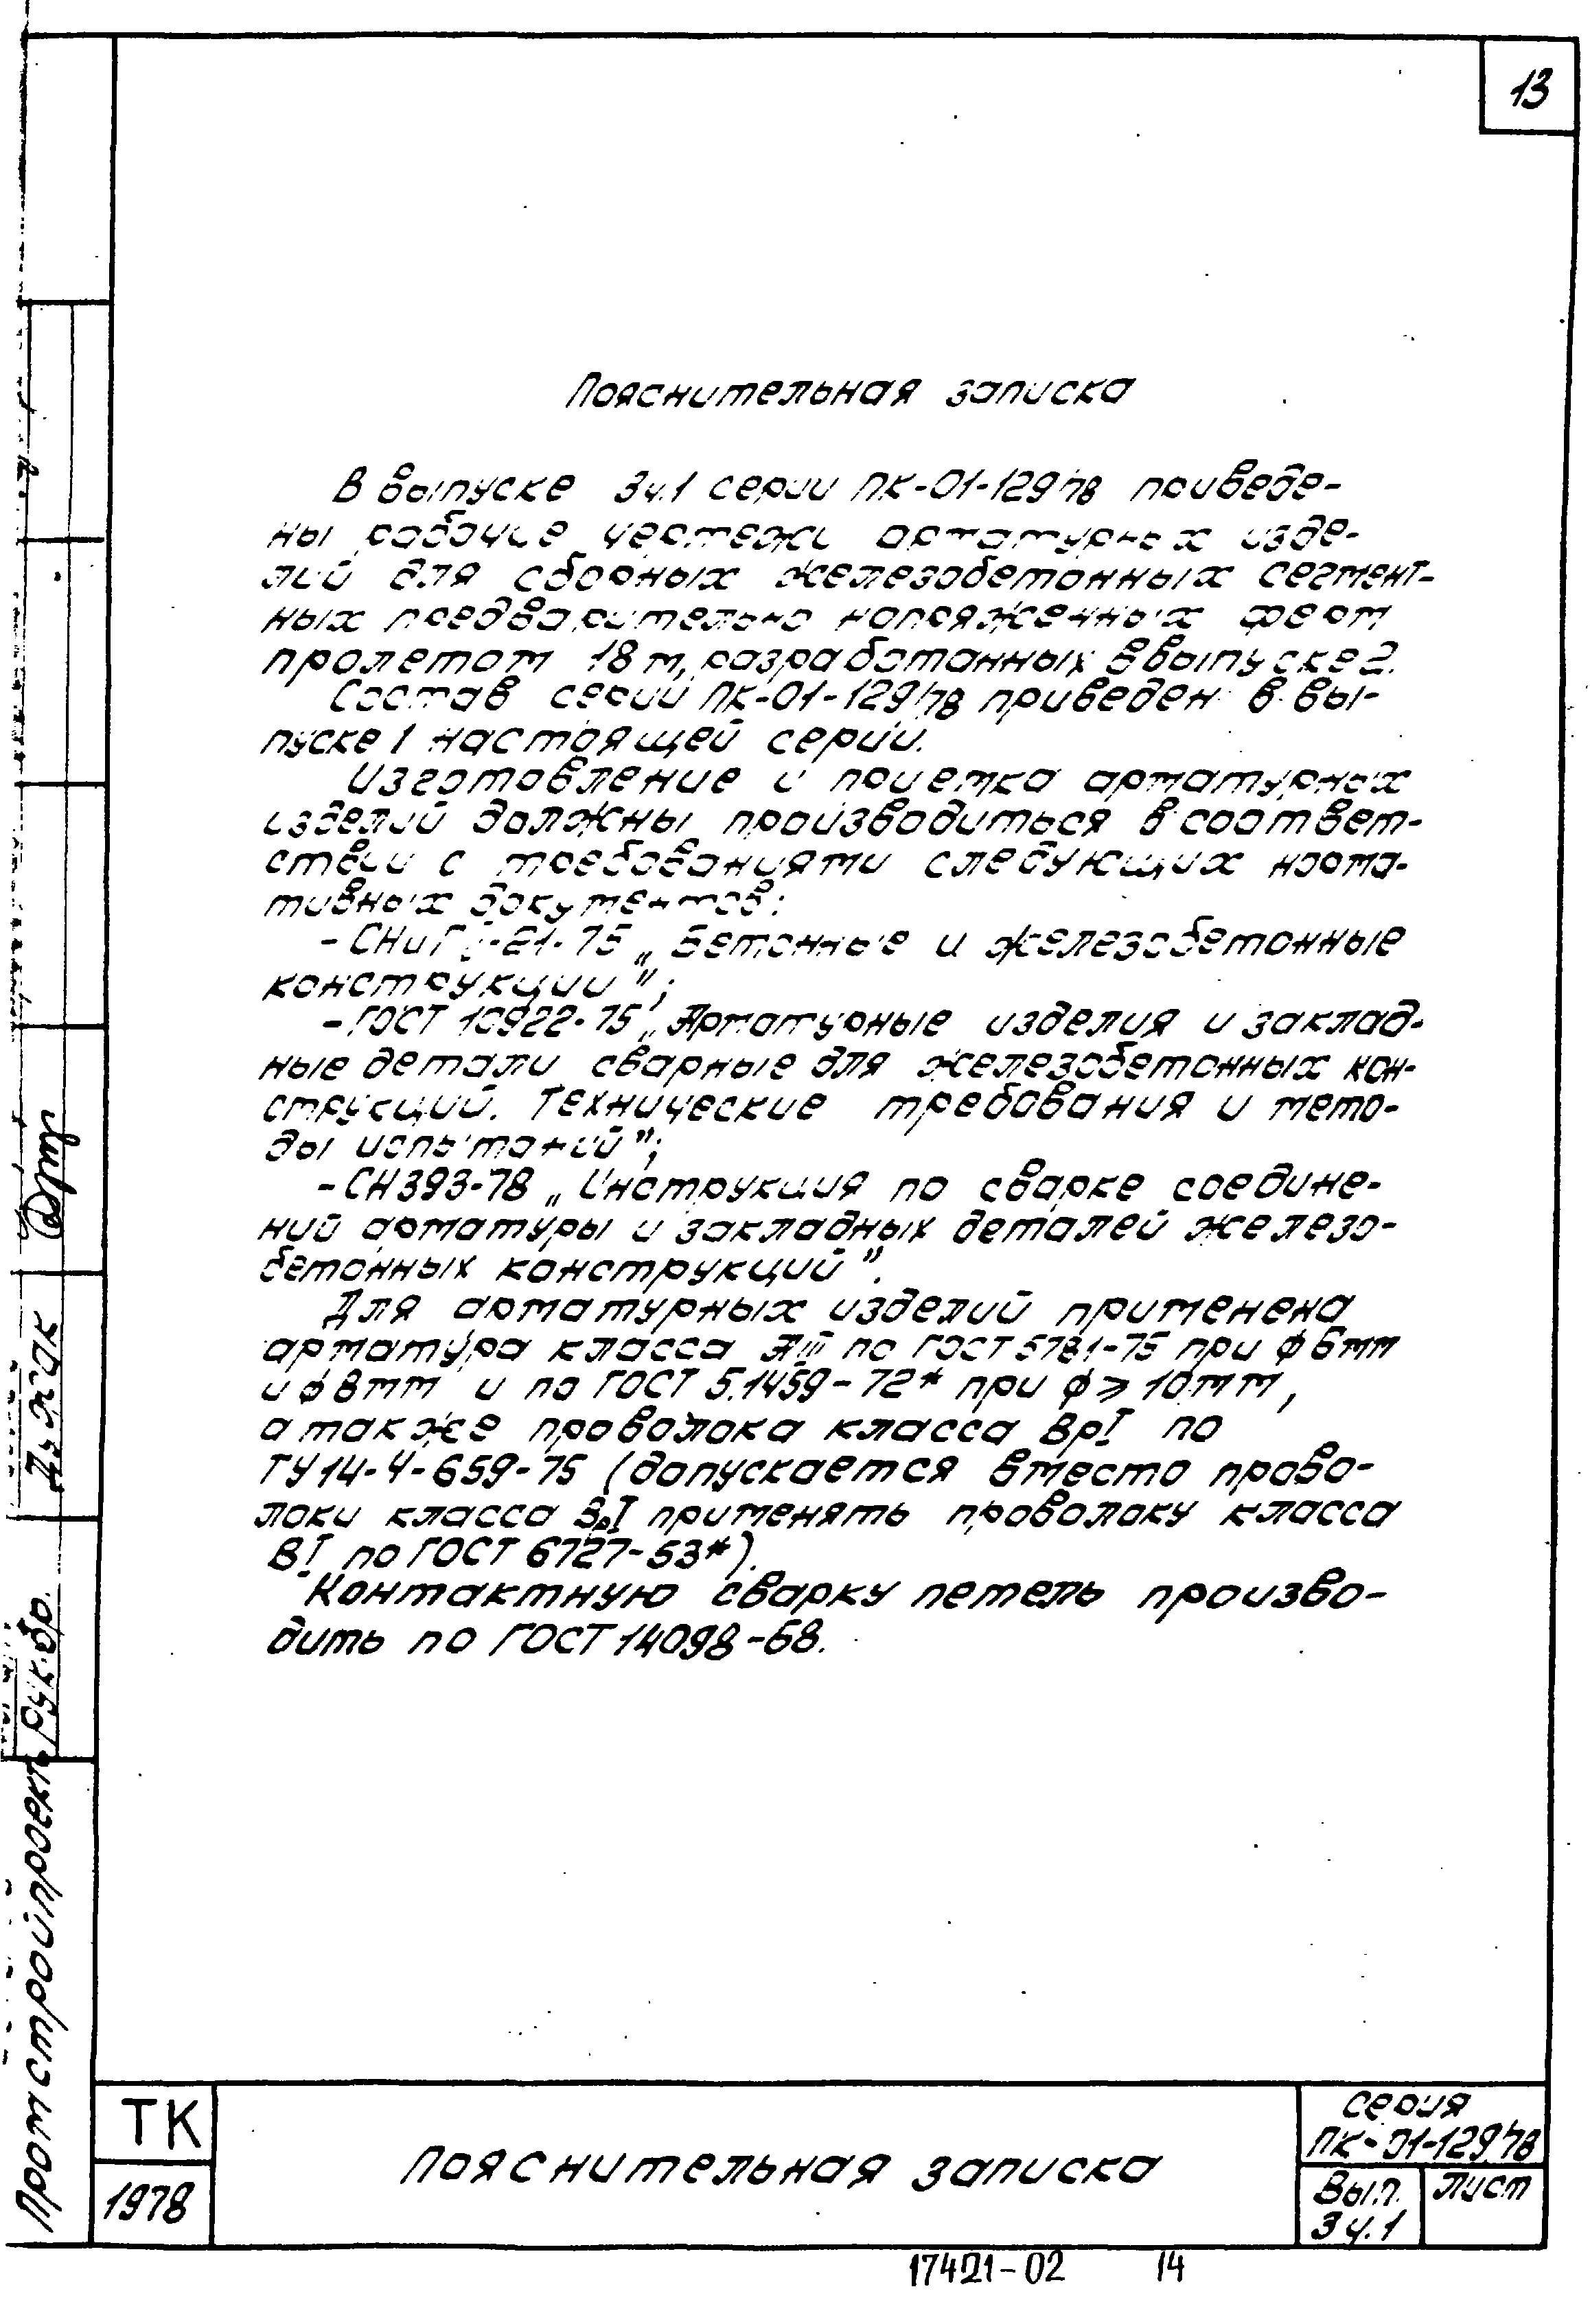 13
Пояснительная записка
В выпуске 3ч.1 серии ПК-01-129/78 приведе-
ны рабочие чертежи арматурных изде-
лий для сборных железобетонных сегмент-
ных предварительно напряженных ферм
пролетом 18м, разработанных в выпуске 2.
Состав серии ПК-01-129/78 приведен в вы-
пуске 1 настоящей серии.
Изготовление и приемка арматурных
изделий должны производиться в соответ-
ствии с требованиями следующих норма-
тивных документов:
- СНиП II-21-75 „Бетонные и железобетонные
конструкции";
- ГОСТ 10922-75 „Арматурные изделия и заклад-
ные детали сварные для железобетонных кон-
струкций. Технические требования и мето-
ды испытаний";
- СН 393-78 „Инструкция по сварке соедине-
ний арматуры и закладных деталей железо-
бетонных конструкций".
Для арматурных изделий применена
арматура класса АIII по ГОСТ 5781-75 при ф 6мм
и ф 8мм и по ГОСТ 5.1459-72* при ф ≥ 10мм,
а также проволока класса ВрI по
ТУ 14-4-659-75 (допускается вместо прово-
локи класса ВрI применять проволоку класса
ВI по ГОСТ 6727-53*).
Контактную сварку петель произво-
дить по ГОСТ 14098-68.
Промстройпроект
Рук.бр.
ТК
1978
Пояснительная записка
серия
ПК-01-129/78
Вып.
3ч.1
лист
17421-02 14